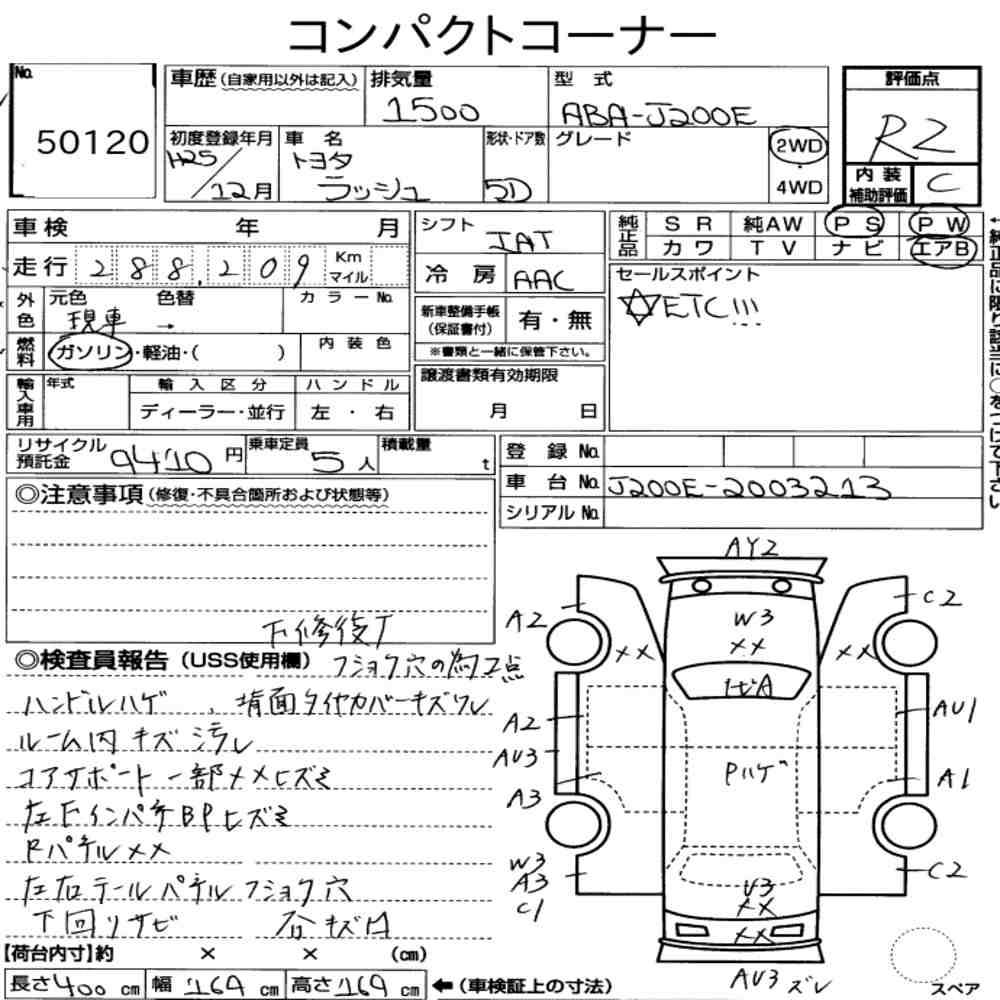 コンパクトコーナー
No. 50120
車歴(自家用以外は記入)
排気量 1500
型式 ABA-J200E
評価点 R2
初度登録年月 H25/12月
車名 トヨタ ラッシュ
形状・ドア数 5D
グレード
2WD
4WD
内装補助評価 C
車検 年 月
走行 288,209 Km マイル
シフト IAT
冷房 AAC
純正品 SR 純AW PS PW
カワ TV ナビ エアB
外色 元色 現車 → 色替 カラーNo.
燃料 ガソリン・軽油・( ) 内装色
新車整備手帳(保証書付) 有・無
※書類と一緒に保管下さい。
セールスポイント
☆ETC!!!
輸入車用 年式 輸入区分 ハンドル
ディーラー・並行 左・右
譲渡書類有効期限
月 日
リサイクル預託金 9410円
乗車定員 5人
積載量 t
登録No.
車台No. J200E-2003213
シリアルNo.
◎注意事項(修復・不具合箇所および状態等)
下修復T
◎検査員報告(USS使用欄)
フショク穴の為1点
ハンドルハゲ、背面タイヤカバーキズワレ
ルーム内キズ汚レ
コアサポート一部メメヒズミ
左FインパネBPヒズミ
Rパネルメメ
左右テールパネルフショク穴
下回リサビ
【荷台内寸】約 × × (cm)
長さ400cm 幅169cm 高さ169cm ←(車検証上の寸法)
AY2
A2
C2
W3
××
××
××
A2
AU3
AU1
Pハゲ
A3
A1
W3
A3
C1
U3
××
××
C2
AU3 ズレ
スペア
←純正品に限り該当に○をつけて下さい